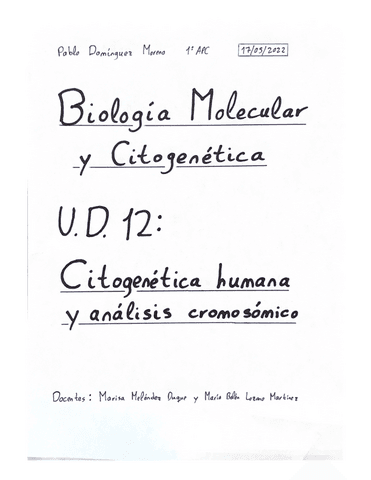 Pablo Domínguez Moreno 1º APC 17/05/2022
Biología Molecular
y Citogenética
U.D. 12:
Citogenética humana
y análisis cromosómico
Docentes: Marisa Meléndez Duque y María Belén Lozano Martínez